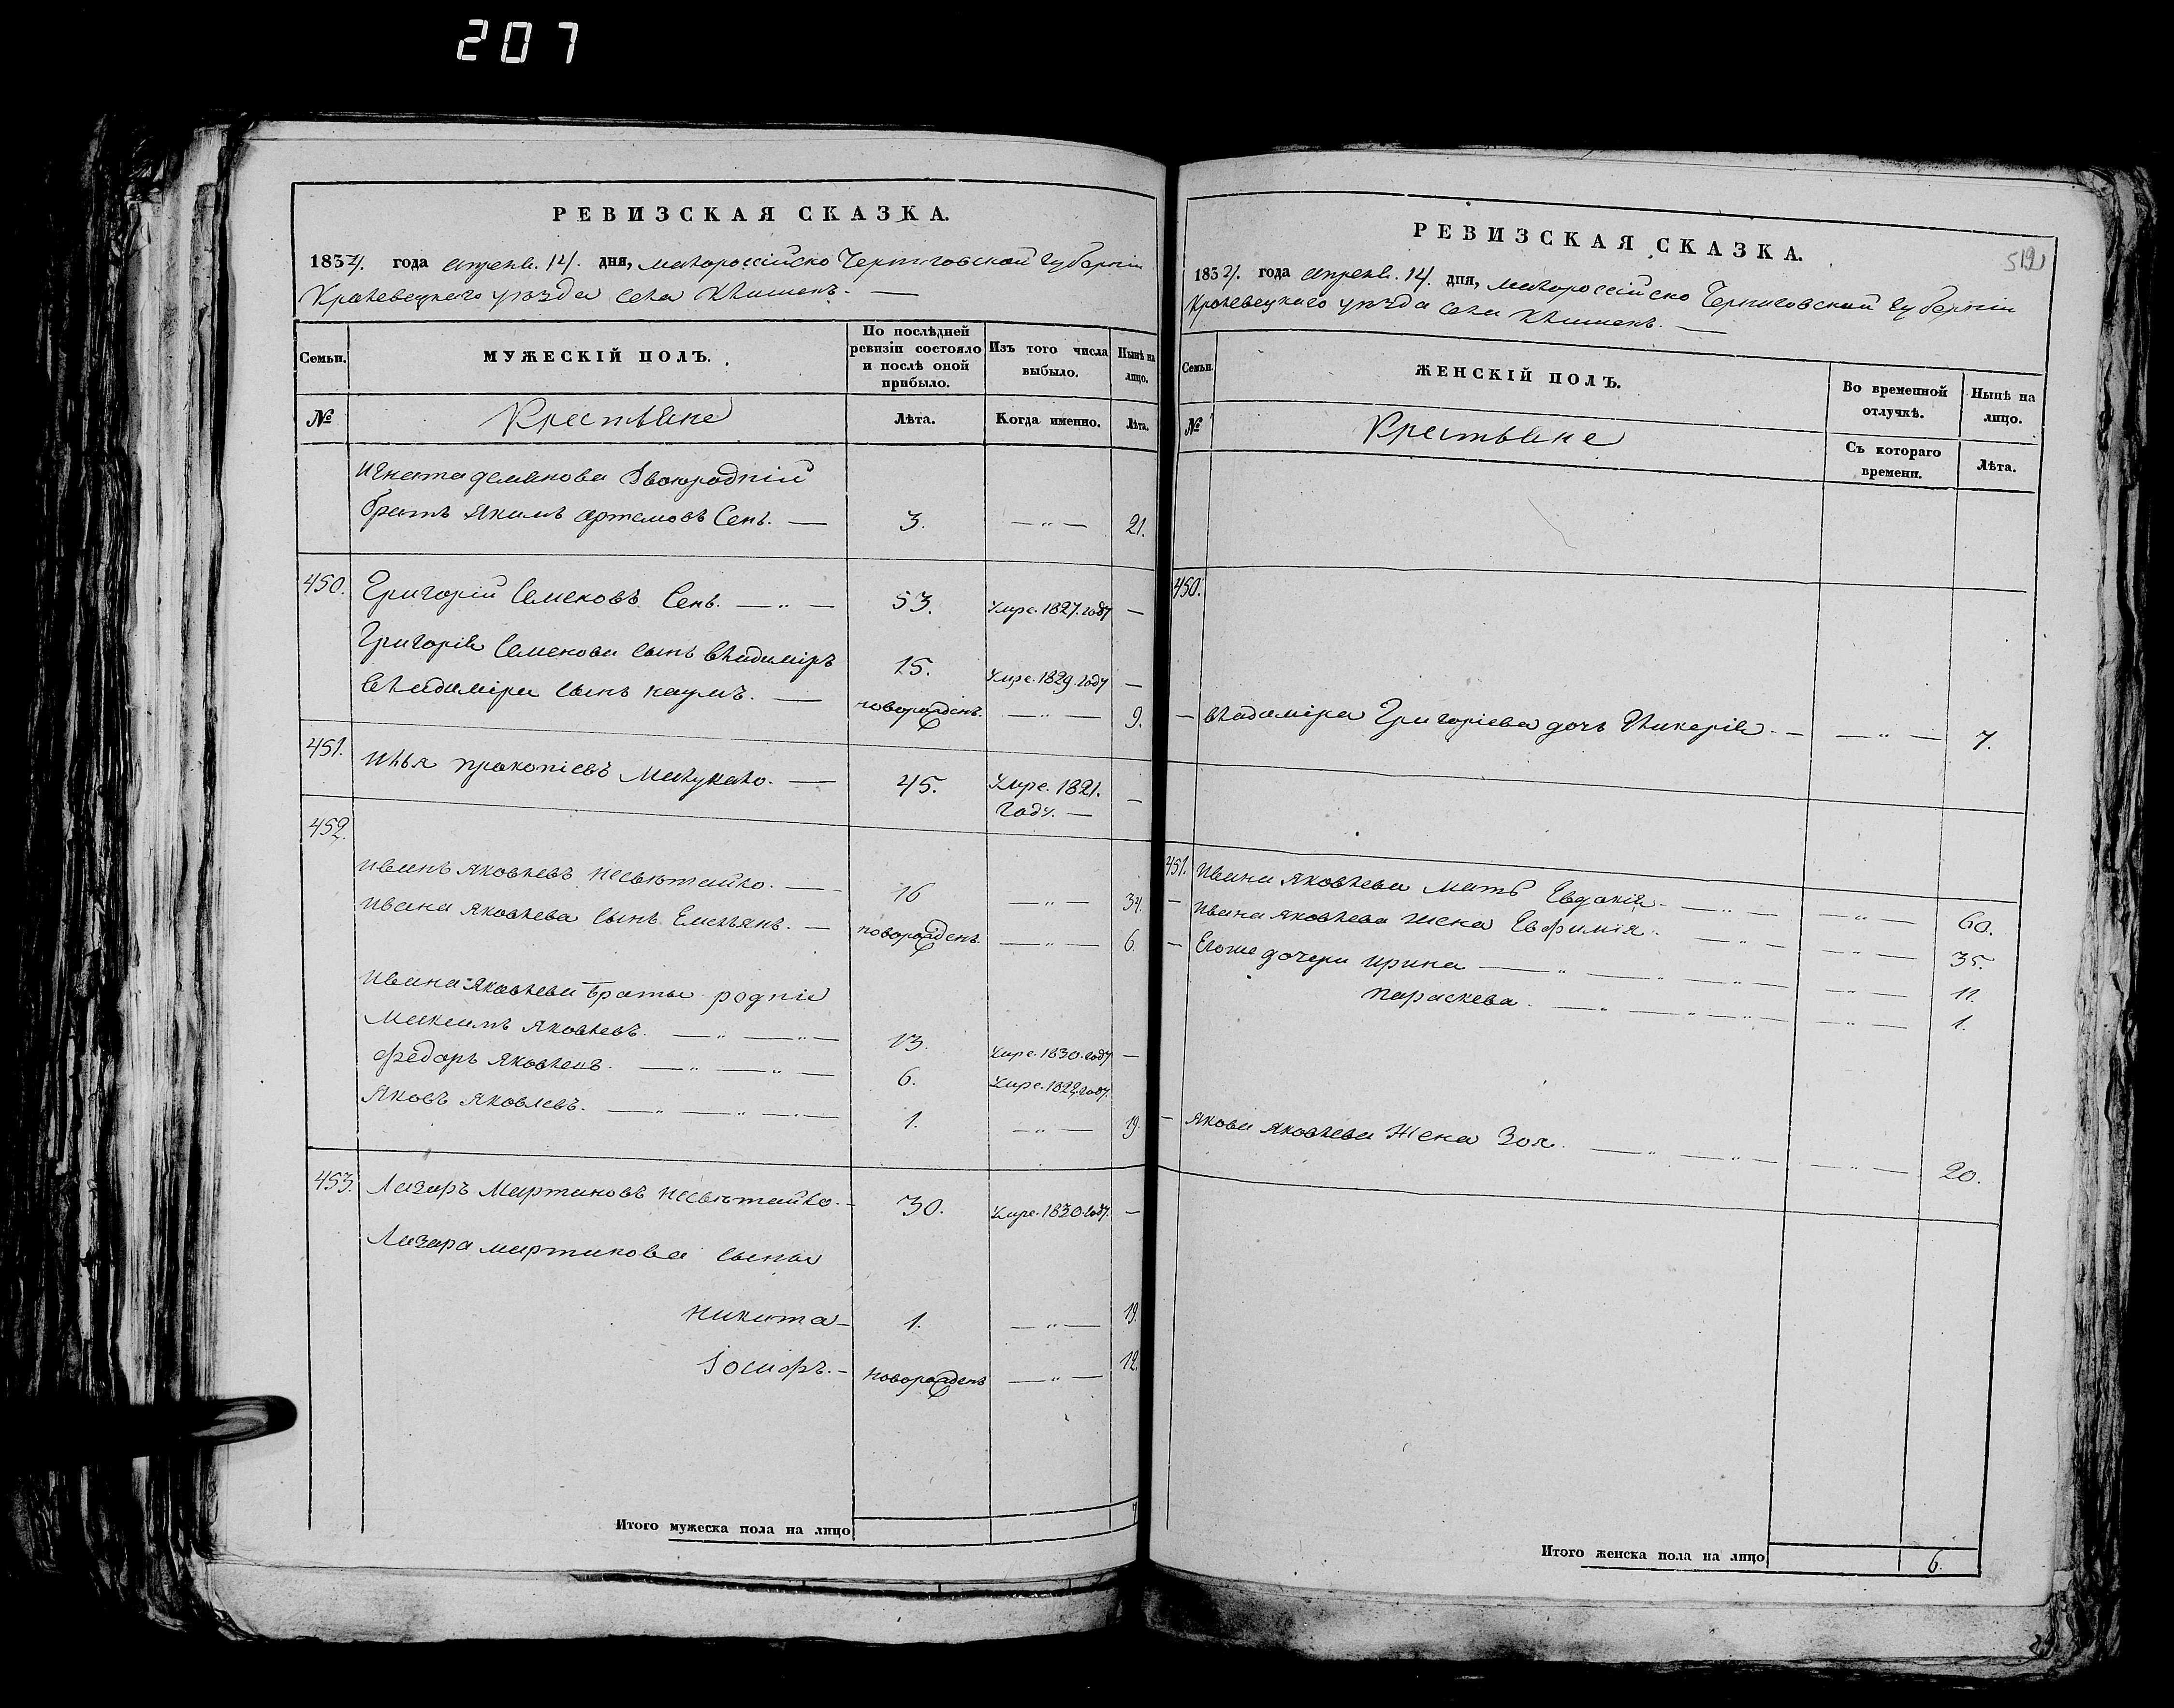 207
РЕВИЗСКАЯ СКАЗКА.
1834. года апреля. 14. дня, малороссійско Черниговской губерніи
Кролевецкаго уезда села Клишекъ. —
Семьи. МУЖЕСКІЙ ПОЛЪ. По послѣдней ревизіи состояло и послѣ оной прибыло. Изъ того числа выбыло. Нынѣ на лицо.
№ Крестьяне Лѣта. Когда именно. Лѣта.
Игната демянова двоюродній
братъ Якимъ Артемовъ Сень. — 3. — „ — 21.
450. Григорій Семеновъ Сень. — „ — 53. Умре. 1827. году —
Григорія Семенова сынъ владиміръ 15. Умре. 1829. году —
владиміра сынъ наумъ. — новорожденъ. — „ — 9.
451. Илья прокопіевъ Макунко. — 45. Умре. 1821. году. — —
452.
Иванъ Яковлевъ Несвѣтайло. — 16 — „ — 34.
Ивана Яковлева сынъ Емельянъ. — новорожденъ. — „ — 6
Ивана Яковлева братья родніе
Максимъ Яковлевъ. — „ — „ — 13. Умре. 1830. году —
Федоръ Яковлевъ. — „ — „ — 6. Умре. 1822. году.
Яковъ Яковлевъ. — „ — „ — 1. — „ — 19.
453. Лазоръ Мартиновъ Несвѣтайло. — 30. Умре. 1830. году. —
Лазара мартинова сынья
Никита — 1. — „ — 19.
Іосифъ. — новорожденъ — „ — 12.
Итого мужеска пола на лицо 7
519
РЕВИЗСКАЯ СКАЗКА.
1834. года апреля. 14. дня, малороссійско Черниговской губерніи
Кролевецкаго уезда села Клишекъ. —
Семьи. ЖЕНСКІЙ ПОЛЪ. Во временной отлучкѣ. Нынѣ на лицо.
№ Крестьяне Съ котораго времени. Лѣта.
450.
— владиміра Григоріева дочь Гликерія. — — „ — 7.
451. Ивана Яковлева мать Евдокія — „ — — „ — 60.
— Ивана Яковлева жена Евфимія. — „ — — „ — 35.
— Егоже дочери Ирина — „ — „ — „ — — „ — 11.
Параскева. — „ — „ — „ — — „ — 1.
— Якова Яковлева жена Зоя. — „ — „ — — „ — 20.
Итого женска пола на лицо 6.